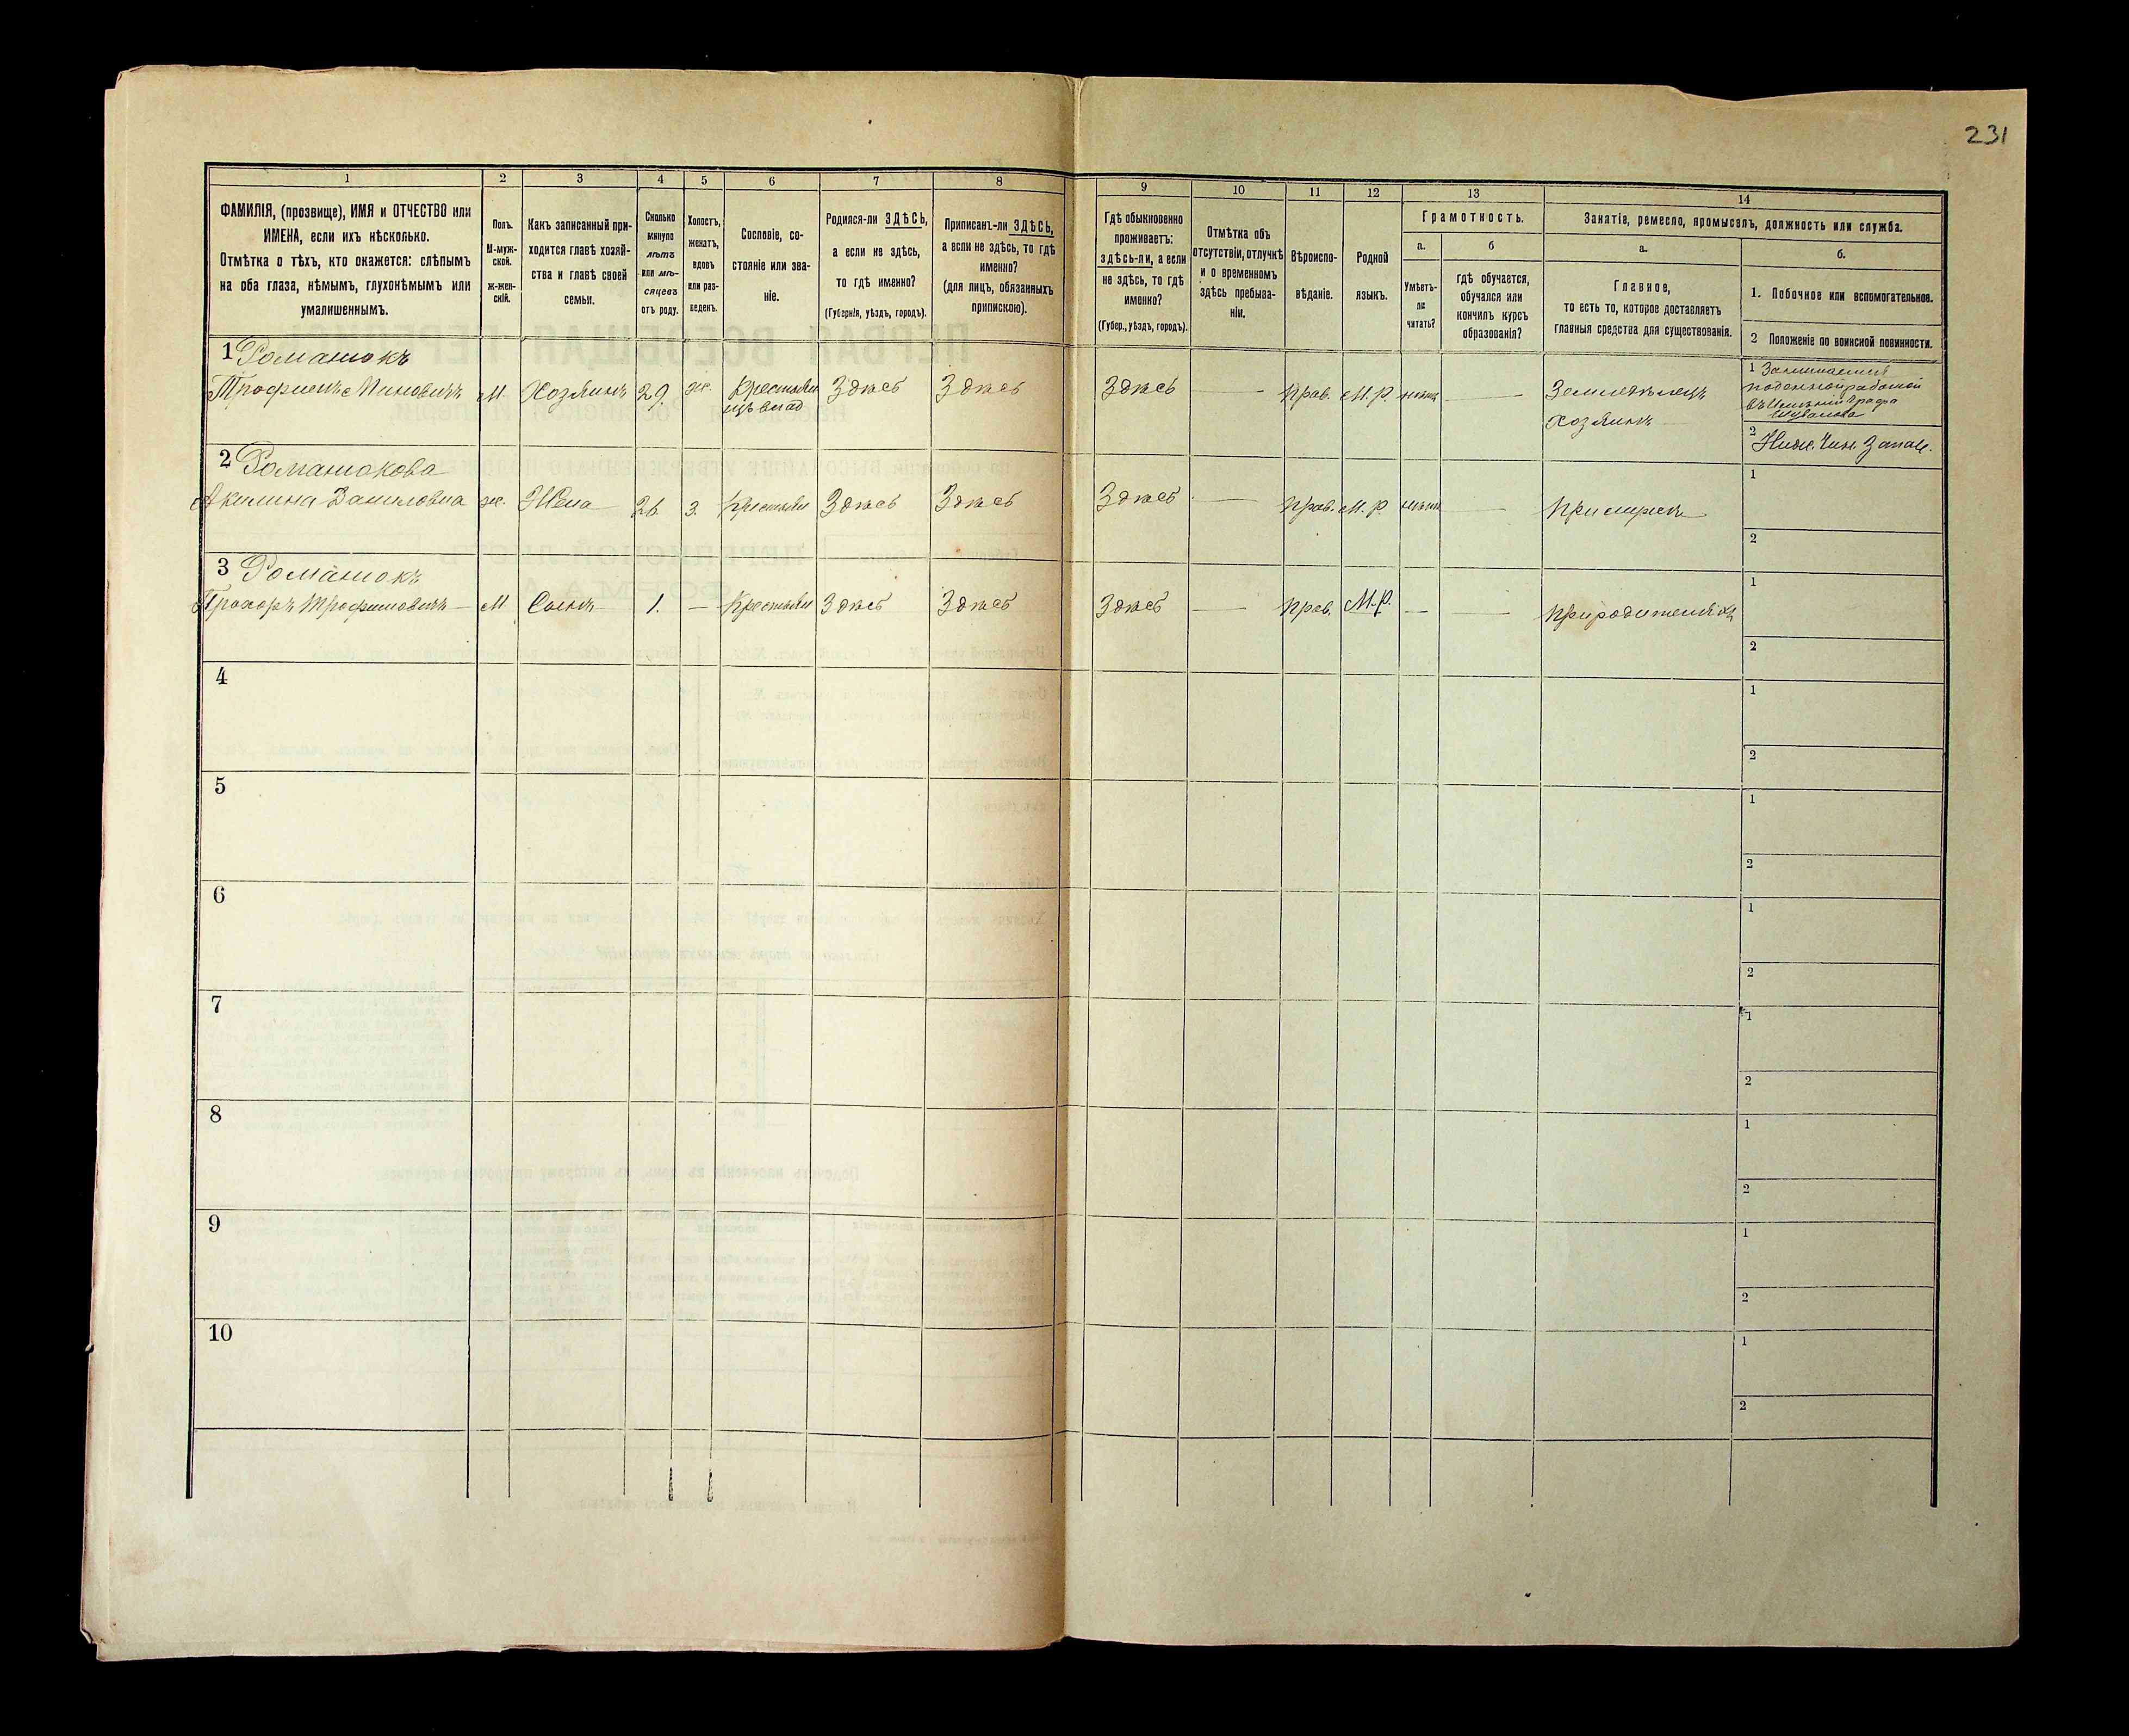 231
1 2 3 4 5 6 7 8 9 10 11 12 13 14
ФАМИЛІЯ, (прозвище), ИМЯ и ОТЧЕСТВО или
ИМЕНА, если ихъ нѣсколько.
Отмѣтка о тѣхъ, кто окажется: слѣпымъ
на оба глаза, нѣмымъ, глухонѣмымъ или
умалишеннымъ.
Полъ.
М-муж-
ской.
ж-жен-
скій.
Какъ записанный при-
ходится главѣ хозяй-
ства и главѣ своей
семьи.
Сколько
минуло
лѣтъ
или мѣ-
сяцевъ
отъ роду.
Холостъ,
женатъ,
вдовъ
или раз-
веденъ.
Сословіе, со-
стояніе или зва-
ніе.
Родился-ли ЗДѢСЬ,
а если не здѣсь,
то гдѣ именно?
(Губернія, уѣздъ, городъ).
Приписанъ-ли ЗДѢСЬ,
а если не здѣсь, то гдѣ
именно?
(для лицъ, обязанныхъ
припискою).
Гдѣ обыкновенно
проживаетъ:
здѣсь-ли, а если
не здѣсь, то гдѣ
именно?
(Губер., уѣздъ, городъ).
Отмѣтка объ
отсутствіи, отлучкѣ
и о временномъ
здѣсь пребыва-
ніи.
Вѣроиспо-
вѣданіе.
Родной
языкъ.
Грамотность.
а.
Умѣетъ-
ли
читать?
б
гдѣ обучается,
обучался или
кончилъ курсъ
образованія?
Занятія, ремесло, промыселъ, должность или служба.
а.
Главное,
то есть то, которое доставляетъ
главныя средства для существованія.
б.
1. Побочное или вспомогательное.
2 Положеніе по воинской повинности.
1 Романюкъ
Трофимъ Миновичъ М. Хозяинъ 29 же. Крестьян Здѣсь Здѣсь Здѣсь — Прав. М.Р. нѣтъ — Земледѣлецъ
изъ влад
Хозяинъ
1 Занимается
поденной работой
въ имѣніи Графа
Шувалова
2 Ниж. Чин. Запас.
2 Романюкова
Акилина Даниловна же. Жена 26 З. Крестьян Здѣсь Здѣсь Здѣсь — Прав. М.Р. нѣтъ — При мужѣ
1
2
3 Романюкъ
Прохоръ Трофимовичъ — М Сынъ 1. — Крестьян Здѣсь Здѣсь Здѣсь — Прав. М.Р. — — При родителяхъ
1
2
4
1
2
5
1
2
6
1
2
7
1
2
8
1
2
9
1
2
10
1
2